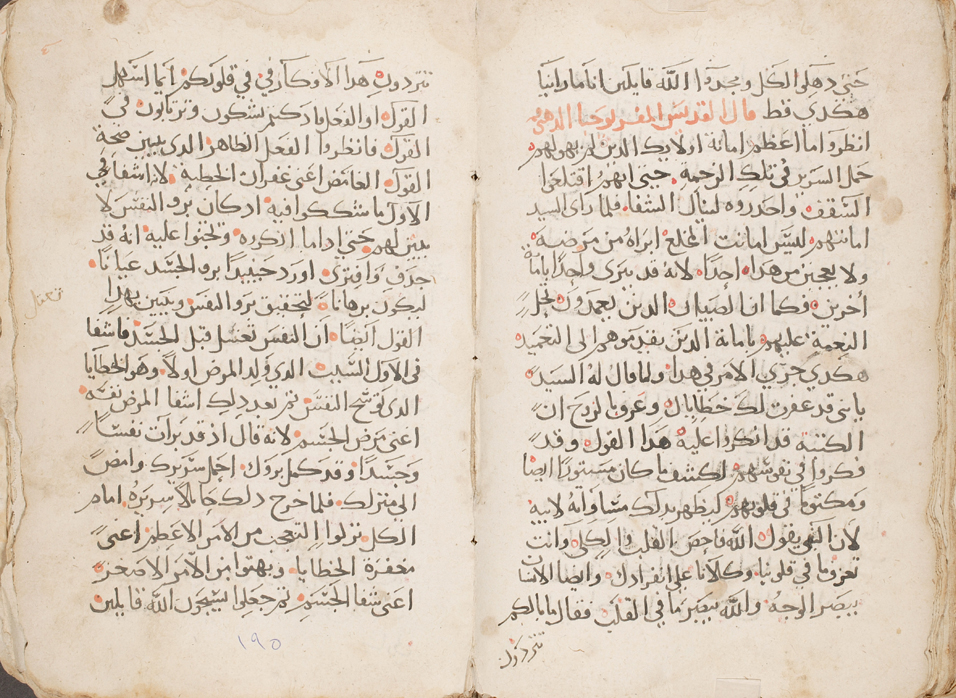 حتى دهلوا الكل ومجدوا الله قايلين اننا ما راينا
هكدي قط قال القديس يوحنا الدهبي فمه
انظروا ما اعظم امانة اولايك الدين لم يهولهم
حمل السرير في تلك الزحمة حتى انهم اقتلعوا
السقف واحدروه لينال الشفا فلما راى السيد
امانتهم ليس امانت المخلع ابراه من مرضه
ولا يعجبن من هدا احدا لانه قد يبرى واحدا بامانة
اخرين فكما ان الصبيان الدين يعمدون تحل
النعمة عليهم بامانة الدين يقدموهم الى التعميد
هكدي جرى الامر في هدا ولما قال له السيد
يا بني قد غفرت لك خطاياك وعرف بالروح ان
الكتبة قد انكروا عليه هدا القول وقد
فكروا في نفوسهم لكشف ما كان مستورا ايضا
ومكتوما في قلوبهم ليظهر بدلك مساواته لابيه
لان النبي يقول الله فاحص القلب والكلى وانت
تعرف ما في قلوبنا وكلانا على انفرادك وايضا الانسان
يبصر الوجه والله يبصر ما في القلب فقال ما بالكم
تتردون
تتردون هدا الافكار في قلوبكم ايما اسهل
القول او الفعل فادكنتم تشكون وترتابون في
القول فانظروا الفعل الظاهر الدى يبين صحة
القول الغامض اعنى غفران الخطية لانه اشفا في
الاول ما شككوا فيه اد كان برو النفس لا
يبين لهم حتى اداما انكروه وتجنوا عليه انه قد
جدف وافترى اورد حينيدا برو الجسد عيانا
ليكون برهانا لتحقيق برو النفس ويبين بهدا
القول ايضا ان النفس تغسل قبل الجسد فاشفا
في الاول السبب الدى ولد المرض اولا وهو الخطايا
الدى توسخ النفس ثم بعد دلك اشفا المرض نفسه
اعنى مرض الجسم لانه قال اد قد برات نفسا
وجسدا وقد كمل بروك احمل سريرك وامض
الى منزلك فلما خرج دلك حاملا سريره امام
الكل تركوا التعجب من الامر الاعظم اعنى
مغفرة الخطايا وبهتوا من الامر الاصغر
اعنى شفا الجسم ثم جعلوا يسبحون الله قايلين
١٩٥